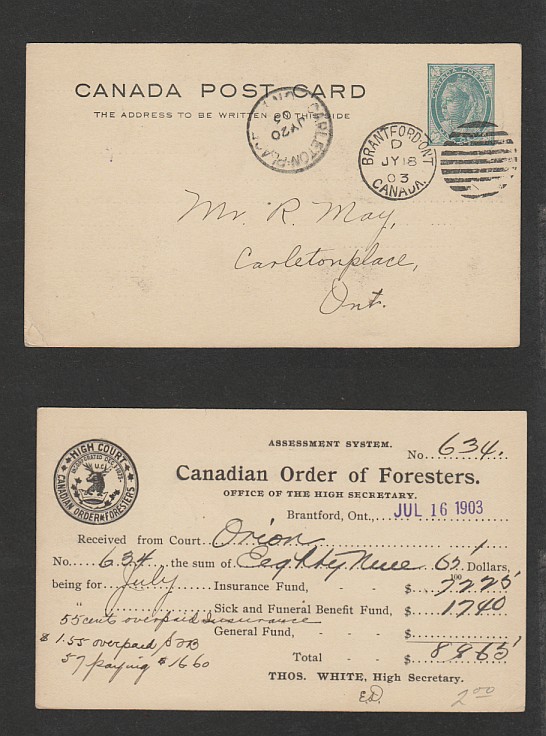 CANADA POST CARD
THE ADDRESS TO BE WRITTEN ON THIS SIDE
CARLETON-PLACE
JY 20
03
ONT
BRANTFORD ONT
D
JY 18
03
CANADA.
Mr. R. May,
Carletonplace,
Ont.
HIGH COURT
CANADIAN ORDER OF FORESTERS
ASSESSMENT SYSTEM.
No. 634.
Canadian Order of Foresters.
OFFICE OF THE HIGH SECRETARY.
Brantford, Ont., JUL 16 1903
Received from Court Orion
No. 634 the sum of Eighty Nine 65/100 Dollars,
being for July Insurance Fund, - - $ 7225
" Sick and Funeral Benefit Fund, $ 1740
55 cent overpaid Insurance
General Fund, - - $
$1.55 overpaid, S & B
Total - - $ 8965
57 paying $1660
THOS. WHITE, High Secretary.
E.D.
2.00